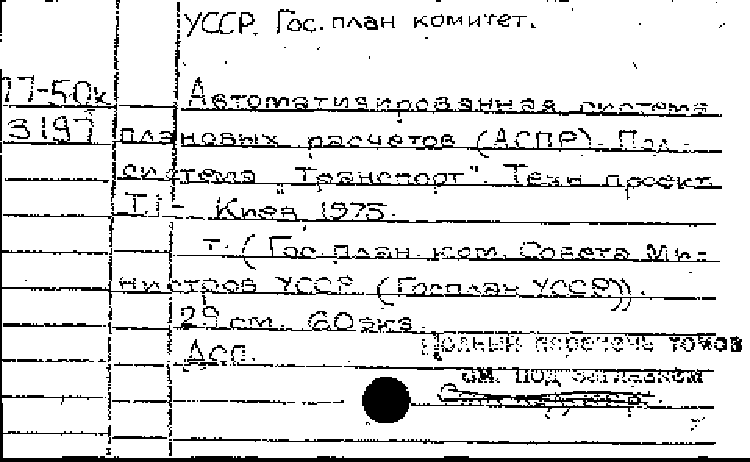 УССР. Гос. план комитет.
77-50к Автоматизированная система
3197 плановых расчетов (АСПР). Под-
система "Транспорт". Техн. проект.
Т.1- Киев, 1975.
т. (Гос. план. ком. Совета Ми-
нистров УССР (Госплан УССР)).
29 см. 60 экз.
Асп.
Полный перечень томов
см. под заглавием